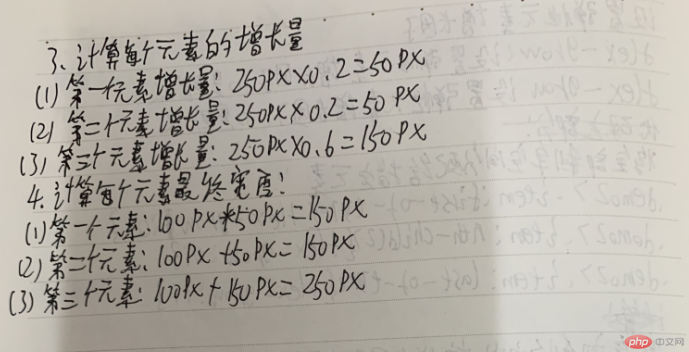 3、计算每个元素的增长量
(1) 第一个元素增长量: 250PX×0.2=50PX
(2) 第二个元素增长量: 250PX×0.2=50 PX
(3) 第三个元素增长量: 250PX×0.6=150PX
4、计算每个元素最终宽度:
(1) 第一个元素: 100PX*50PX=150PX
(2) 第二个元素: 100PX+50PX=150PX
(3) 第三个元素: 100PX+150PX=250PX
php 中文网